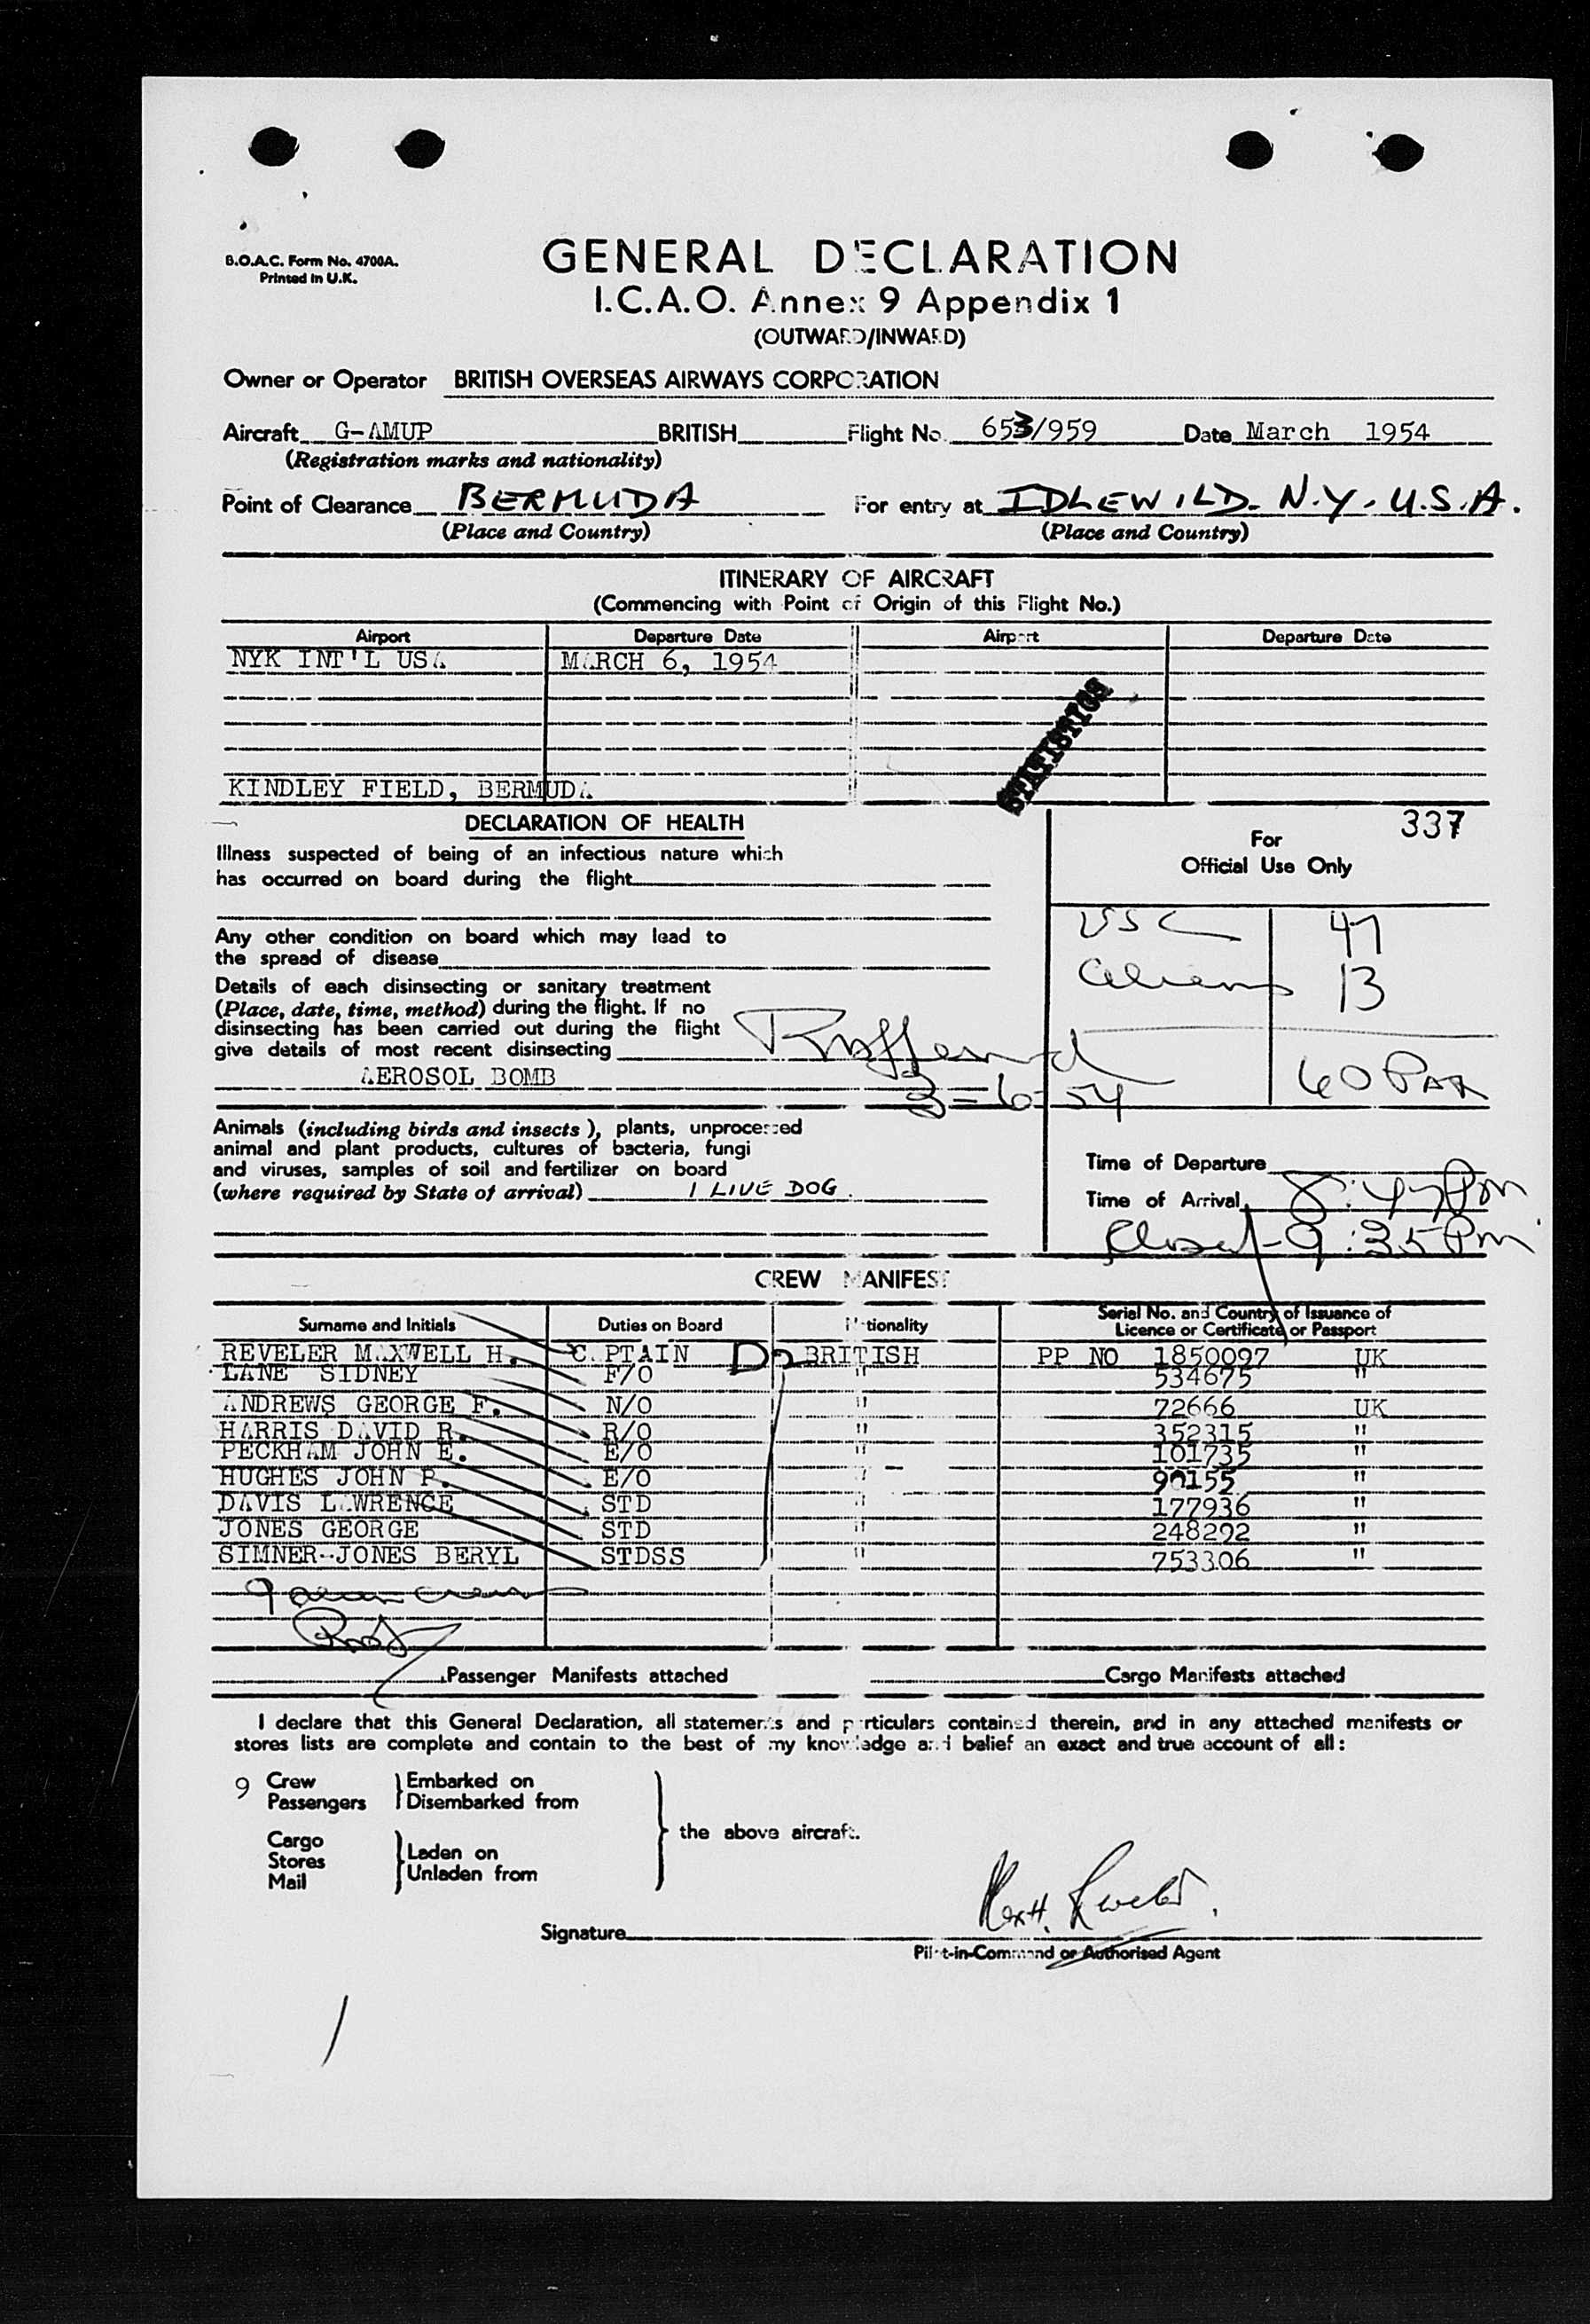 B.O.A.C. Form No. 4700A.
Printed in U.K.
GENERAL DECLARATION
I.C.A.O. Annex 9 Appendix 1
(OUTWARD/INWARD)
Owner or Operator BRITISH OVERSEAS AIRWAYS CORPORATION
Aircraft G-AMUP BRITISH Flight No. 653/959 Date March 1954
(Registration marks and nationality)
Point of Clearance BERMUDA For entry at IDLEWILD. N.Y. U.S.A.
(Place and Country) (Place and Country)
ITINERARY OF AIRCRAFT
(Commencing with Point of Origin of this Flight No.)
Airport Departure Date Airport Departure Date
NYK INT'L USA MARCH 6, 1954
STATISTICS
KINDLEY FIELD, BERMUDA
DECLARATION OF HEALTH
Illness suspected of being of an infectious nature which
has occurred on board during the flight
Any other condition on board which may lead to
the spread of disease
Details of each disinsecting or sanitary treatment
(Place, date, time, method) during the flight. If no
disinsecting has been carried out during the flight
give details of most recent disinsecting
AEROSOL BOMB
3-6-54
Animals (including birds and insects), plants, unprocessed
animal and plant products, cultures of bacteria, fungi
and viruses, samples of soil and fertilizer on board
(where required by State of arrival) 1 LIVE DOG.
337
For
Official Use Only
USC 47
Aliens 13
60 PAX
Time of Departure
Time of Arrival 8:47 Pm
Closed - 9:35 Pm
CREW MANIFEST
Surname and Initials Duties on Board Nationality Serial No. and Country of Issuance of
Licence or Certificate or Passport
REVELER MAXWELL H. CAPTAIN BRITISH PP NO 1850097 UK
LANE SIDNEY F/O " 534675 "
ANDREWS GEORGE F. N/O " 72666 UK
HARRIS DAVID R. R/O " 352315 "
PECKHAM JOHN E. E/O " 101735 "
HUGHES JOHN P. E/O " 90155 "
DAVIS LAWRENCE STD " 177936 "
JONES GEORGE STD " 248292 "
SIMNER-JONES BERYL STDSS " 753306 "
9 alien crew
Passenger Manifests attached Cargo Manifests attached
I declare that this General Declaration, all statements and particulars contained therein, and in any attached manifests or
stores lists are complete and contain to the best of my knowledge and belief an exact and true account of all:
9 Crew Embarked on
Passengers Disembarked from
the above aircraft.
Cargo
Stores Laden on
Mail Unladen from
Signature
Pilot-in-Command or Authorised Agent